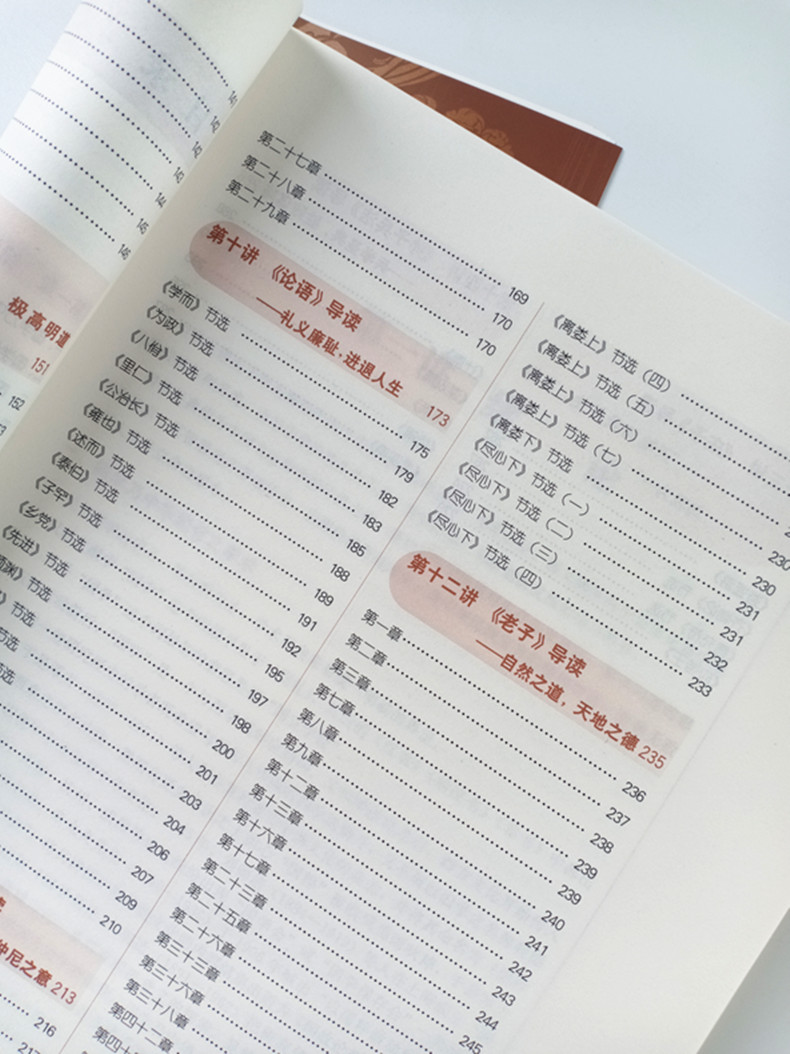 141
142
143
144
145
146
极高明
151
152
第二十七章 169
第二十八章 170
第二十九章 170
第十讲 《论语》导读
——礼义廉耻，进退人生 173
《学而》节选 175
《为政》节选 179
《八佾》节选 182
《里仁》节选 183
《公冶长》节选 185
《雍也》节选 188
《述而》节选 189
《泰伯》节选 191
《子罕》节选 192
《乡党》节选 195
《先进》节选 197
颜渊》节选 198
》节选 200
节选 201
节选 203
204
206
207
209
210
仲尼之意 213
216
217
《离娄上》节选（四）
《离娄上》节选（五）
《离娄上》节选（六）
《离娄上》节选（七） 230
《离娄下》节选 230
《尽心下》节选（一） 231
《尽心下》节选（二） 231
《尽心下》节选（三） 232
《尽心下》节选（四） 233
第十二讲 《老子》导读
——自然之道，天地之德 235
第一章 236
第二章 237
第三章 238
第七章 239
第八章 239
第九章 240
第十二章 241
第十三章 242
第十六章 243
第十七章 244
第二十三章 245
第二十五章
第二十六章
第三十三章
第三十六章
第三十八章
第四十二章
第四十